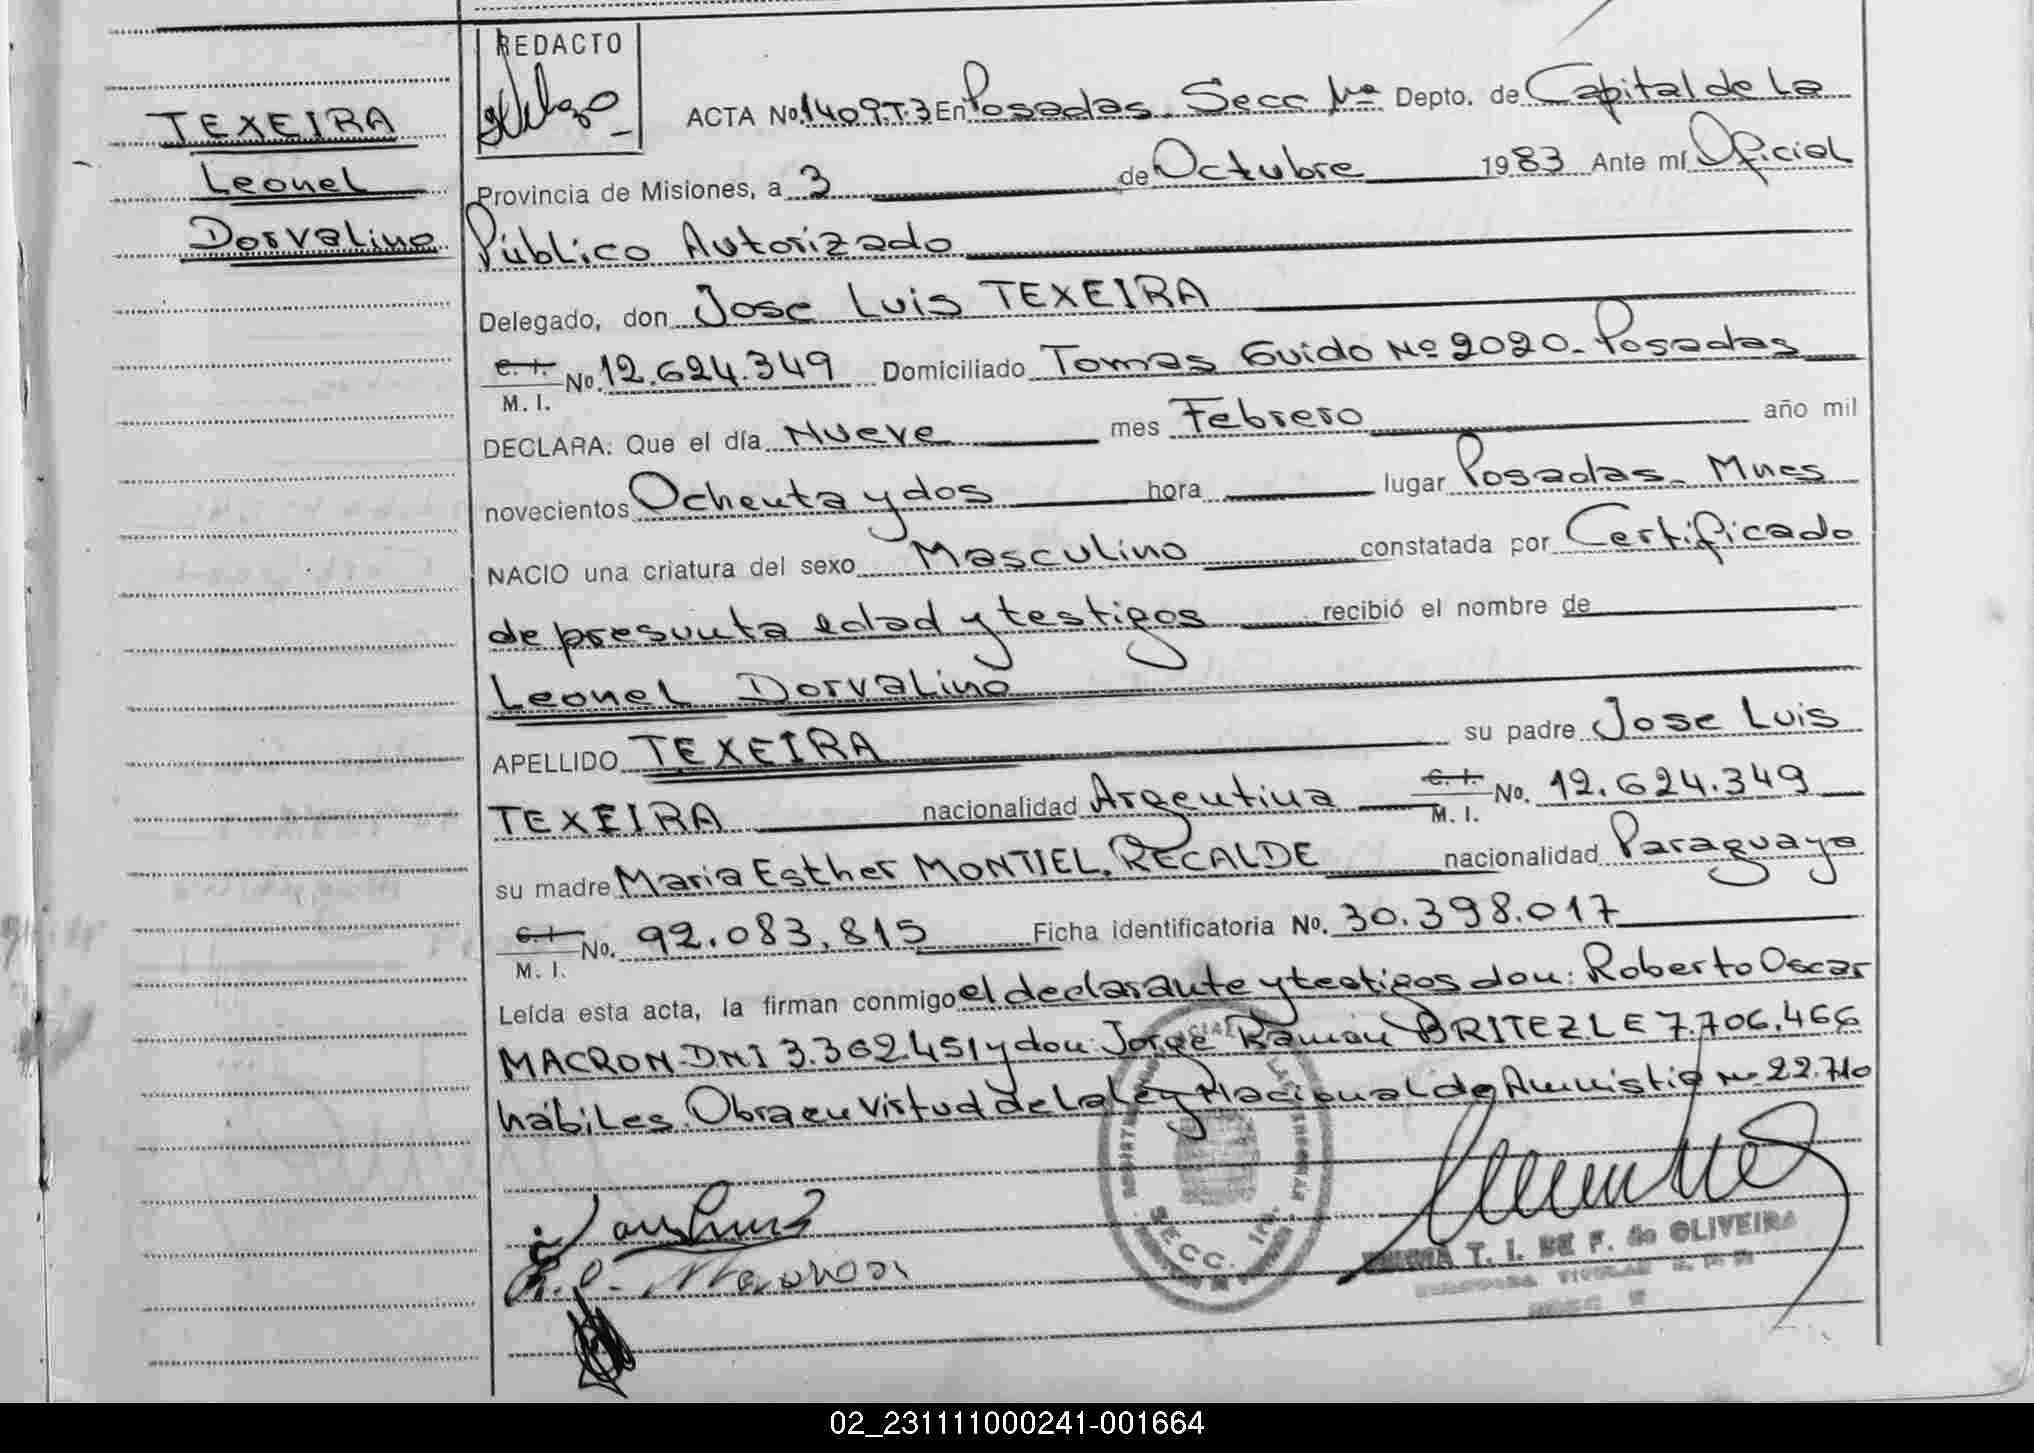 TEXEIRA
Leonel
Dorvalino
REDACTO
ACTA No. 1409.T.3 En Posadas. Secc 1ra Depto. de Capital de La
Provincia de Misiones, a 3 de Octubre 1983 Ante mí Oficial
Público Autorizado
Delegado, don Jose Luis TEXEIRA
C. I. M. I. No. 12.624.349 Domiciliado Tomas Guido Nº 2020. Posadas
DECLARA: Que el día Nueve mes Febrero año mil
novecientos Ochenta y dos hora lugar Posadas. Mnes
NACIO una criatura del sexo Masculino constatada por Certificado
de presunta edad y testigos recibió el nombre de
Leonel Dorvalino
APELLIDO TEXEIRA su padre Jose Luis
TEXEIRA nacionalidad Argentina C. I. M. I. No. 12.624.349
su madre Maria Esther MONTIEL RECALDE nacionalidad Paraguaya
C. I. M. I. No. 92.083.815 Ficha identificatoria No. 30.398.017
Leída esta acta, la firman conmigo el declarante y testigos don: Roberto Oscar
MACRON-DNI 3.362.451 y don: Jorge Ramón BRITEZ LE 7.706.466
hábiles. Obra en virtud de la ley Nacional de Amnistia nº 22.710
SECC. 1ra.
T. I. DE F. de OLIVEIRA
02_231111000241-001664